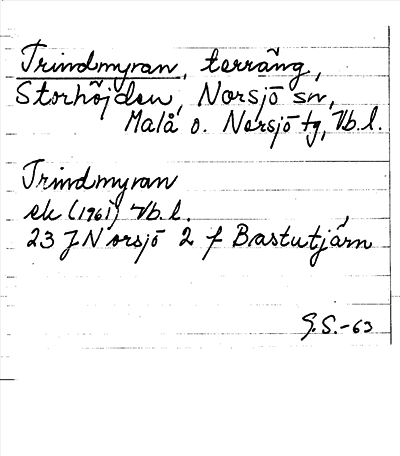 Trindmyran, terräng,
Storhöjden, Norsjö sn,
Malå o. Norsjö tg, Vb.l.
Trindmyran
ek (1961) Vb.l.
23 J Norsjö 2 f Bastutjärn
G.S.-63